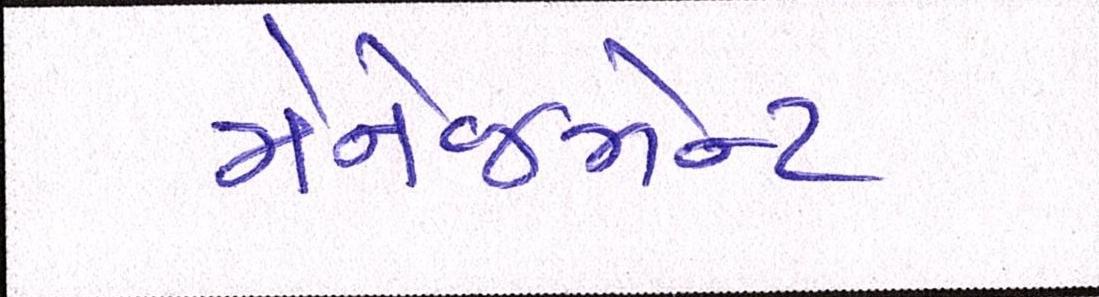 મેનેજમેન્ટ